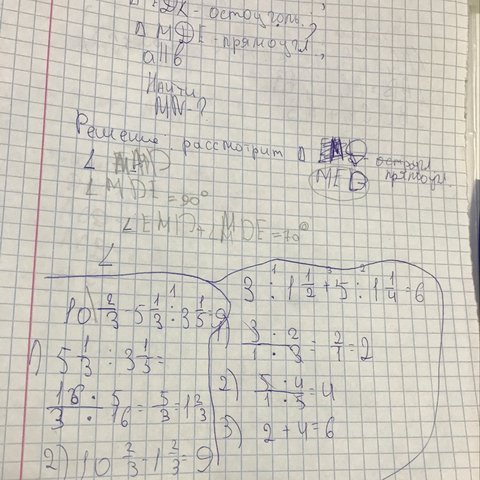 Δ EDK - остоугольн.;
Δ MDE - прямоугл.,
a || b
Найти
MN - ?
Решение: рассмотрит Δ остоугл.
MED прямоугл.
∠ MDE = 90°
∠ EMD + ∠ MDE = 70°
∠
10 2/3 - 5 1/3 : 3 1/5 = 9
1) 5 1/3 : 3 1/5 =
16/3 · 5/16 = 5/3 = 1 2/3
2) 10 2/3 - 1 2/3 = 9
3 : 1 1/2 + 5 : 1 1/4 = 6
1) 3 · 2 / 1 · 3 = 2/1 = 2
2) 5 · 4 / 1 · 5 = 4
3) 2 + 4 = 6